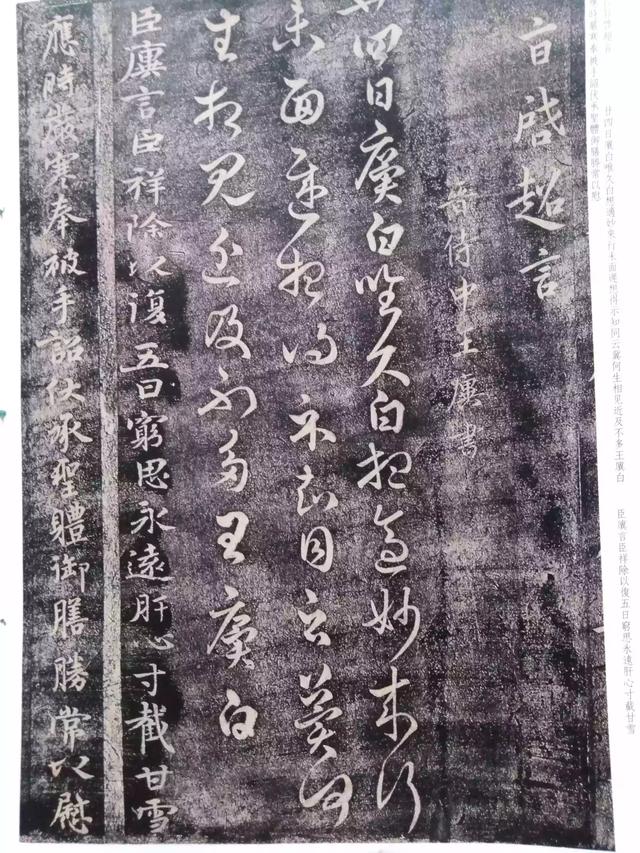 廿四日廙白唯久白想適妙來行未面遲想得示知同云冀何生相見近及不多王廙白 臣廙言臣祥除以復五日窮思永遠肝心寸截甘雪
應時嚴寒奉被手詔伏承聖體御膳勝常以慰
啓超言
晉侍中王廙書
廿四日廙白唯久白想適妙來行
未面遲想得示知同云冀何
生相見近及不多王廙白
臣廙言臣祥除以復五日窮思永遠肝心寸截甘雪
應時嚴寒奉被手詔伏承聖體御膳勝常以慰